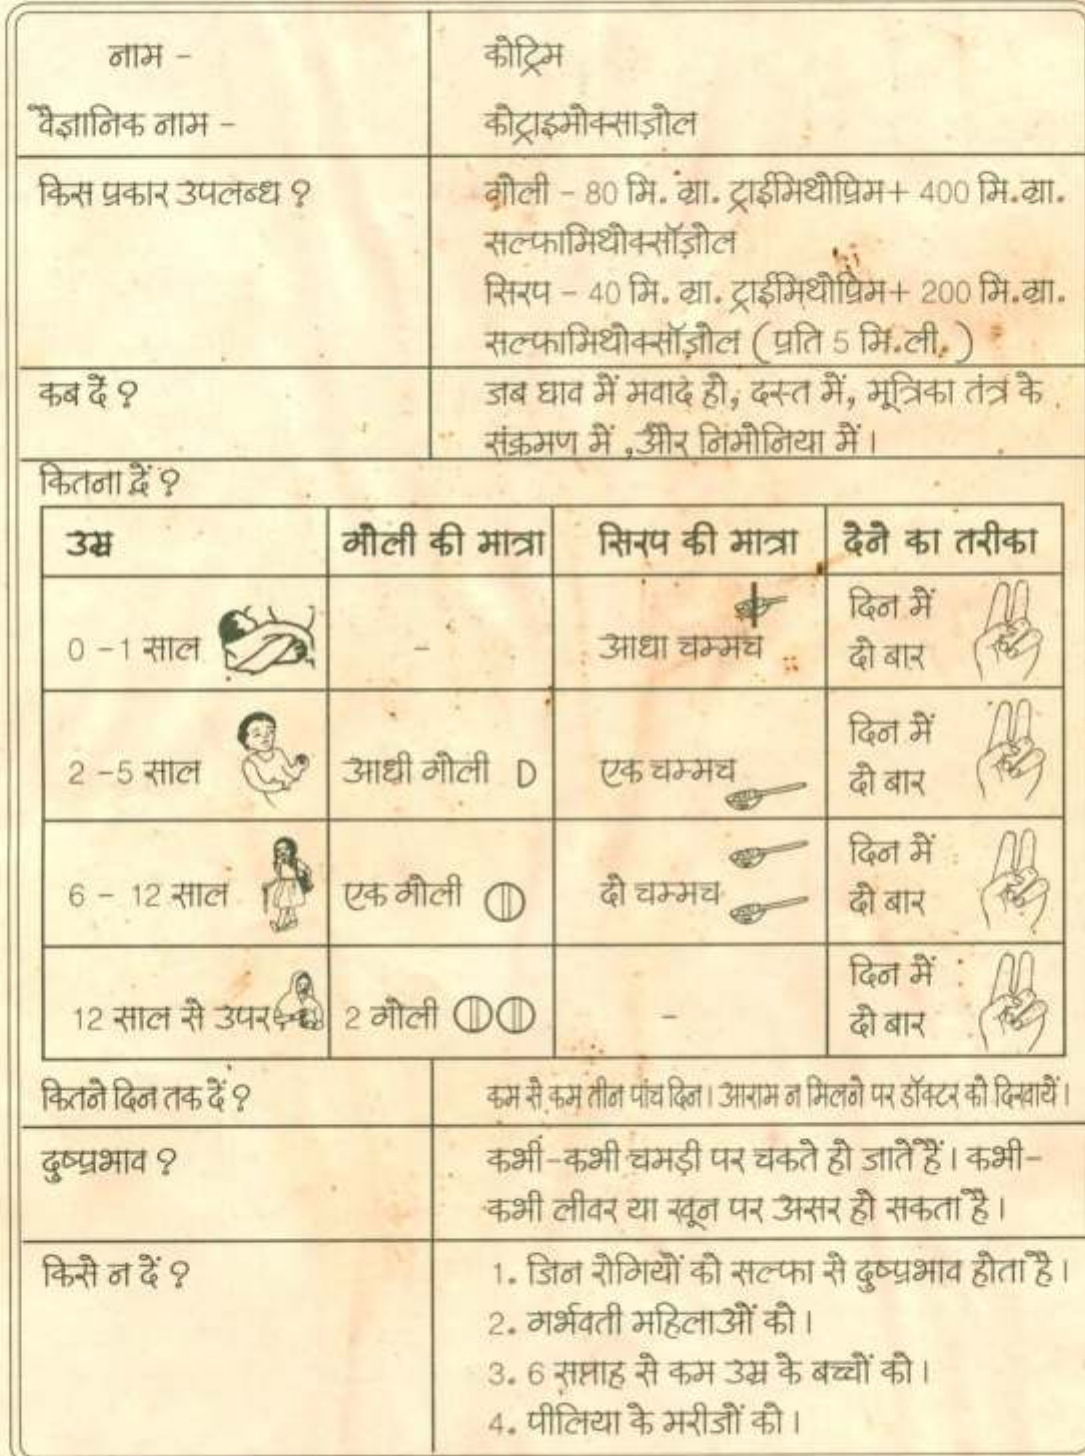 नाम -
कोट्रिम
वैज्ञानिक नाम -
कोट्राइमोक्साज़ोल
किस प्रकार उपलब्ध ?
गोली - 80 मि. ग्रा. ट्राईमिथोप्रिम+ 400 मि.ग्रा.
सल्फामिथोक्सॉज़ोल
सिरप - 40 मि. ग्रा. ट्राईमिथोप्रिम+ 200 मि.ग्रा.
सल्फामिथोक्सॉज़ोल ( प्रति 5 मि.ली. )
कब दें ?
जब घाव में मवाद हो, दस्त में, मूत्रिका तंत्र के
संक्रमण में ,और निमोनिया में।
कितना दें ?
उम्र
गोली की मात्रा
सिरप की मात्रा
देने का तरीका
0 -1 साल
-
आधा चम्मच
दिन में
दो बार
2 -5 साल
आधी गोली
एक चम्मच
दिन में
दो बार
6 - 12 साल
एक गोली
दो चम्मच
दिन में
दो बार
12 साल से उपर
2 गोली
-
दिन में
दो बार
कितने दिन तक दें ?
कम से कम तीन पांच दिन। आराम न मिलने पर डॉक्टर को दिखायें।
दुष्प्रभाव ?
कभी-कभी चमड़ी पर चकते हो जाते हैं। कभी-
कभी लीवर या खून पर असर हो सकता है।
किसे न दें ?
1. जिन रोगियों को सल्फा से दुष्प्रभाव होता है।
2. गर्भवती महिलाओं को।
3. 6 सप्ताह से कम उम्र के बच्चों को।
4. पीलिया के मरीजों को।